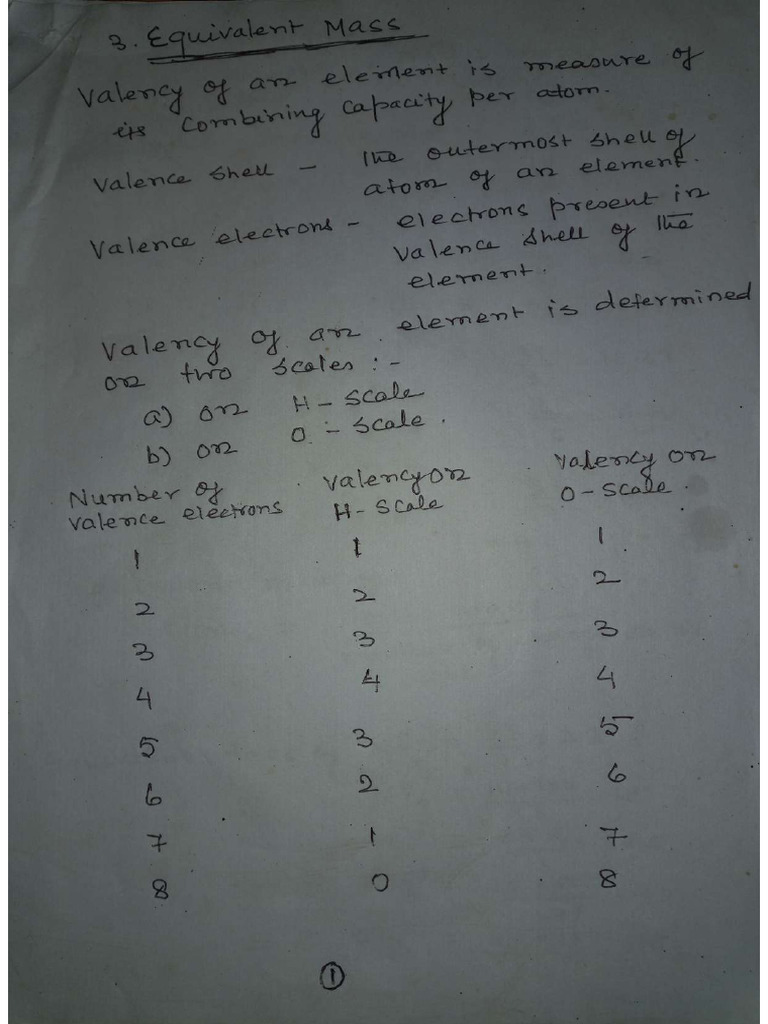 3. Equivalent Mass
Valency of an element is measure of
its combining capacity per atom.
Valence shell - The outermost shell of
atom of an element.
Valence electrons - electrons present in
valence shell of the
element.
Valency of an element is determined
on two scales :-
a) on H - scale
b) on O - scale.
Number of valence electrons Valency on H - scale Valency on O - scale.
1 1 1
2 2 2
3 3 3
4 4 4
5 3 5
6 2 6
7 1 7
8 0 8
1